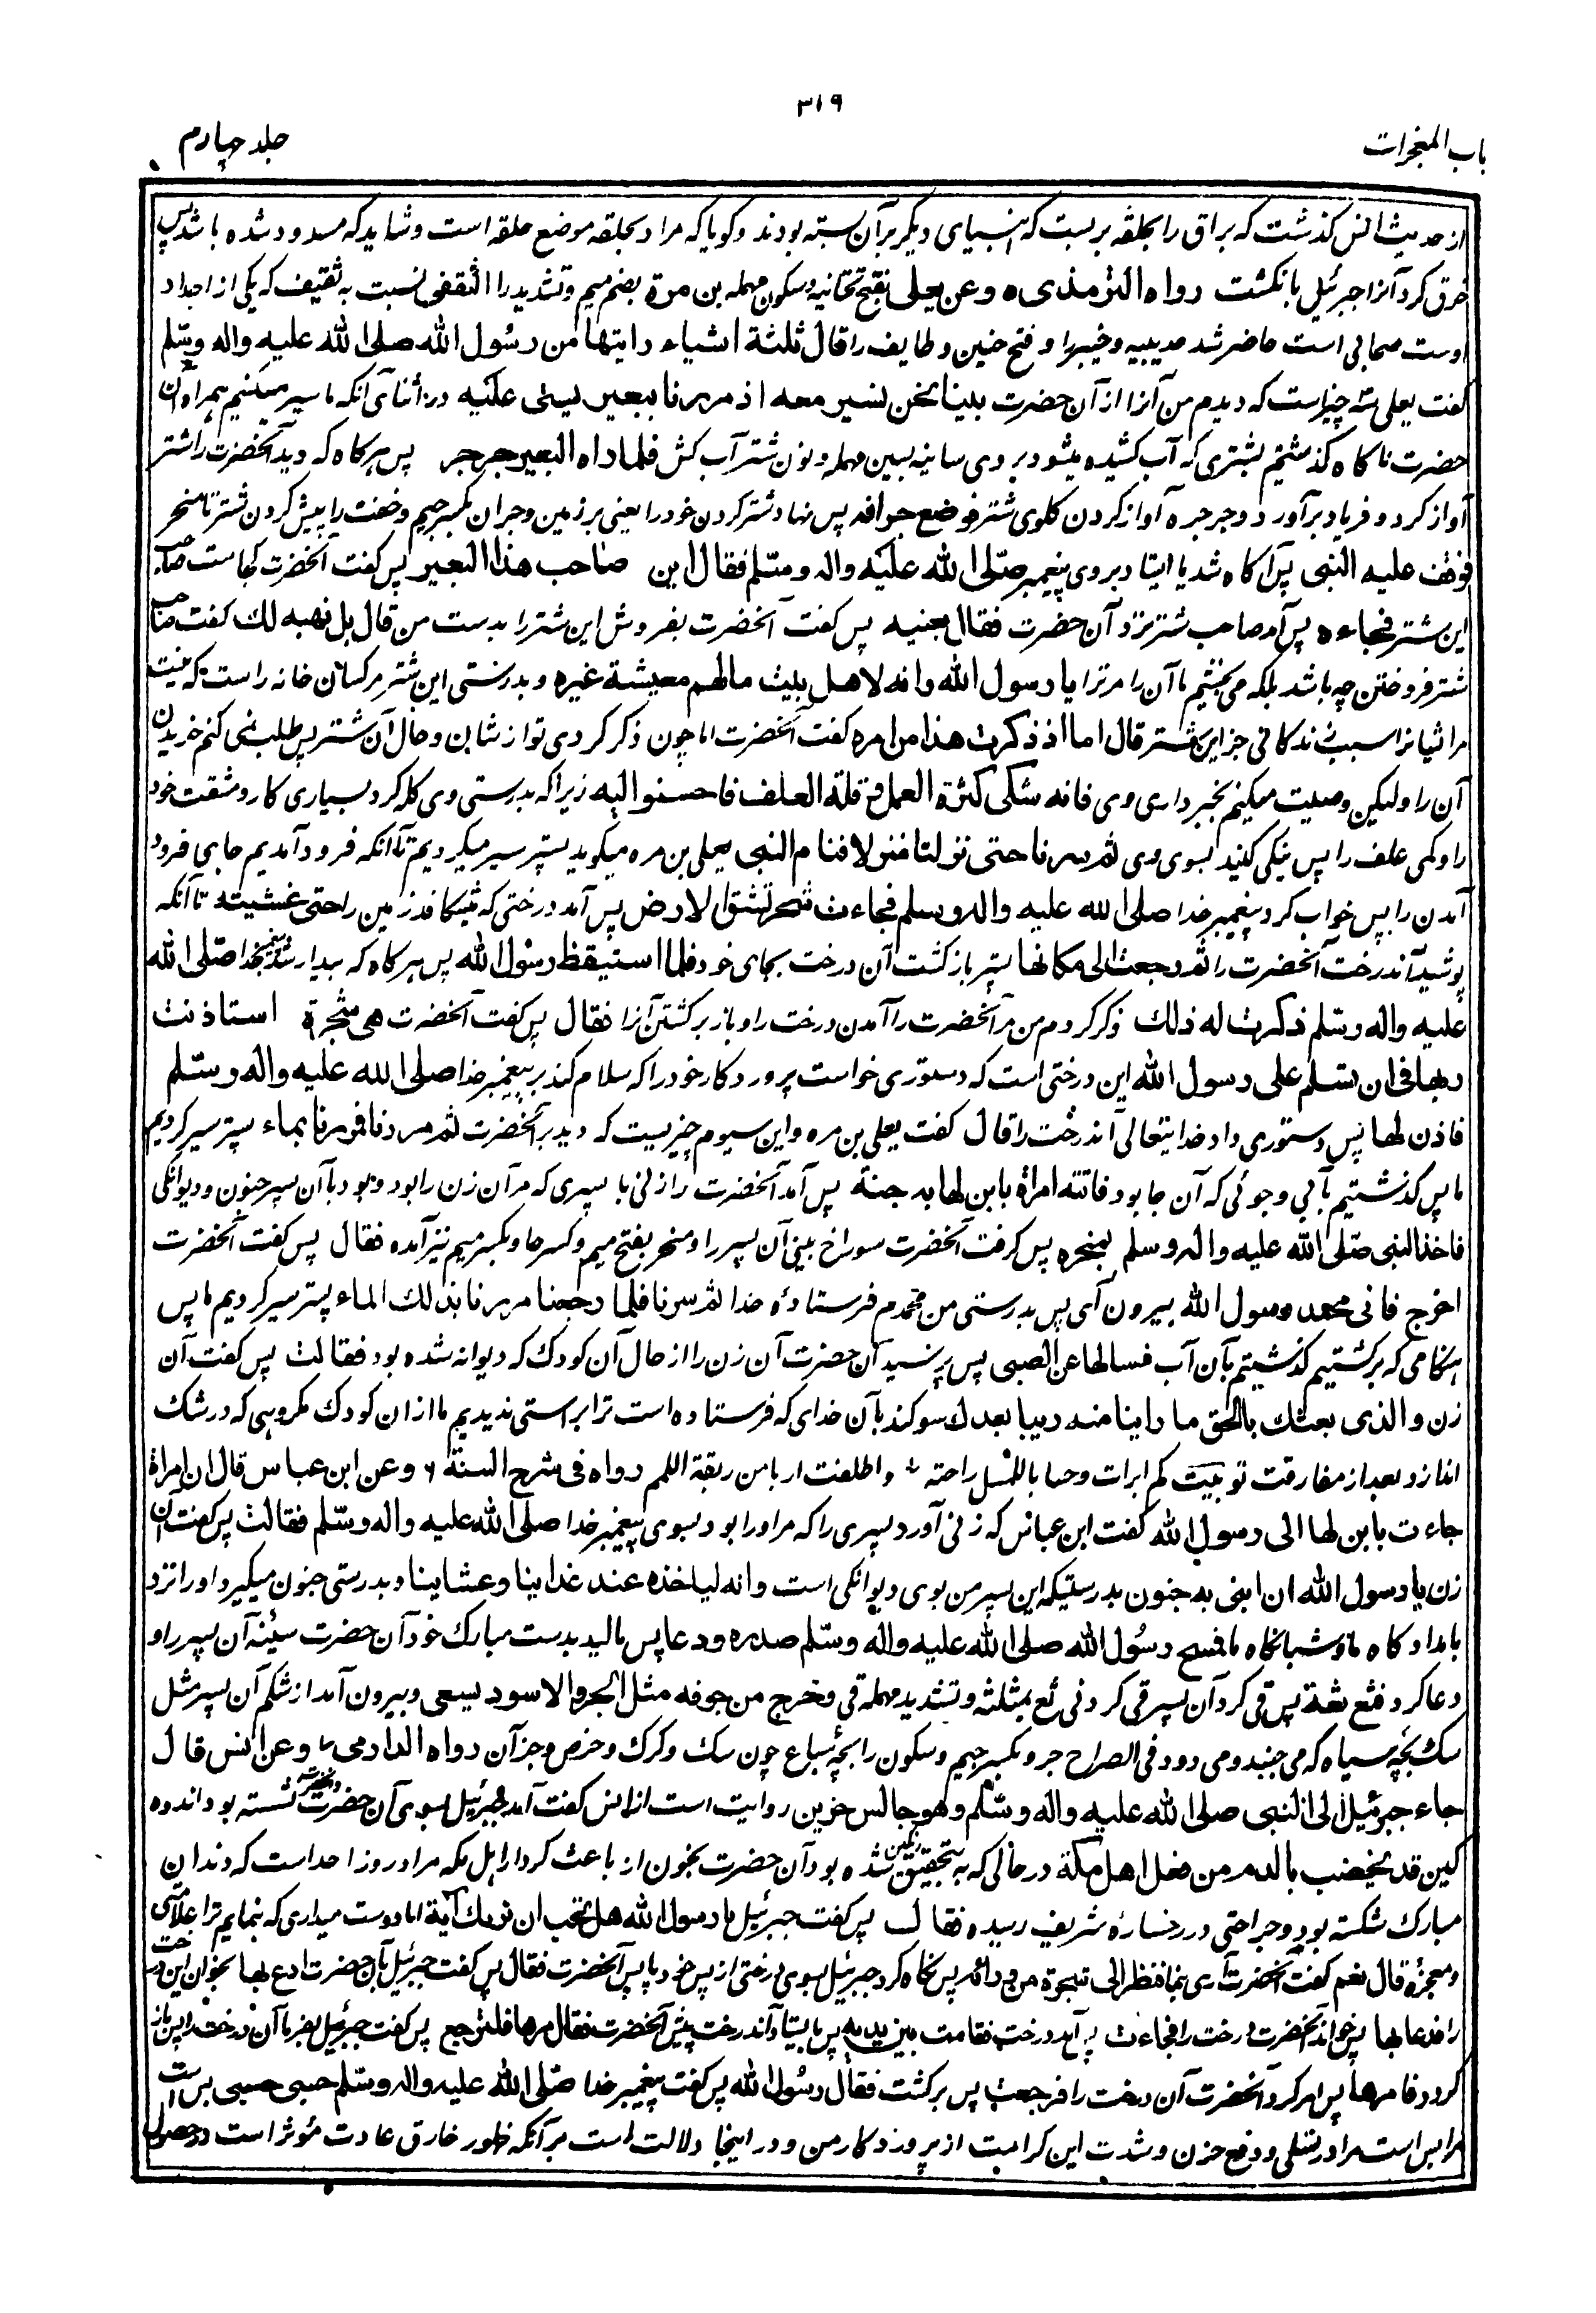 ۳۱۹
باب المعجزات
جلد چهارم
از حدیث انس کذشت که براق را بحلقه بربست که انبیای دیکر بر آن بسته بودند وکویا که مراد بحلقه موضع حلقه است وشاید که مسدود شده باشد پس
خرق کرد آنرا جبرئیل بانکشت رواه الترمذی وعن یعلی بفتح تحتانیه وسکون مهمله بن مرة بضم میم وتشدید را الثقفی نسبت به ثقیف که یکی از اجداد
اوست صحابی است حاضر شد حدیبیه وخیبر را وفتح حنین وطایف را قال ثلثة اشیاء رایتها من رسول الله صلی الله علیه واله وسلم
کفت یعلی سه چیز است که دیدم من آنرا از آن حضرت بینا نحن نسیر معه اذ مررنا ببعیر یسنی علیه در اثنای آنکه ما سیر میکنیم همراه آن
حضرت ناکاه کذشتیم بشتری که آب کشیده میشود بر وی سانیه بسین مهمله ونون شتر آب کش فلما راه البعیر جرجر پس هرکاه که دید آنحضرت را شتر
آواز کرد و فریاد برآورد وجرجره آواز کردن کلوی شتر فوضع جرانه پس نهاد شتر کردن خود را یعنی بر زمین وجران بکسر جیم وخفت را پیش کردن شتر تا منحر
فوقف علیه النبی پس آکاه شد یا ایستاد بر وی پیغمبر صلی الله علیه واله وسلم فقال این صاحب هذا البعیر پس کفت آنحضرت کجاست صاحب
این شتر فجاءه پس آمد صاحب شتر نزد آن حضرت فقال بعنیه پس کفت آنحضرت بفروش این شتر را بدست من قال بل نهبه لك کفت صاحب
شتر فروختن چه باشد بلکه می بخشیم ما آن را مر ترا یا رسول الله وانه لاهل بیت مالهم معیشة غیره وبدرستی این شتر مر کسان خانه راست که نیست
مر ایشانرا اسباب زندکانی جز این شتر قال اما اذ ذکرت هذا من امره کفت آنحضرت اما چون ذکر کردی تو از شان وحال آن شتر پس طلب نمی کنم خریدن
آن را ولیکن وصیت میکنم بخبرداری وی فانه شکی کثرة العمل وقلة العلف فاحسنوا الیه زیرا که بدرستی وی کله کرد بسیاری کار ومشقت خود
را وکمی علف را پس نیکی کنید بسوی وی ثم سرنا حتی نزلنا منزلا فنام النبی یعلی بن مره میکوید پستر سیر میکردیم تا آنکه فرود آمدیم جایی فرود
آمدن را پس خواب کرد پیغمبر خدا صلی الله علیه واله وسلم فجاءت شجرة تشق الارض پس آمد درختی که میشکافد زمین را حتی غشیته تا آنکه
پوشید آندرخت آنحضرت را ثم رجعت الی مکانها پستر بازکشت آن درخت بجای خود فلما استیقظ رسول الله پس هرکاه که بیدار شد پیغمبر خدا صلی الله
علیه واله وسلم ذکرت له ذلك ذکر کردم من مر آنحضرت را آمدن درخت را و باز برکشتن آنرا فقال پس کفت آنحضرت هی شجرة استاذنت
ربها فی ان تسلم علی رسول الله این درختی است که دستوری خواست پروردکار خود را که سلام کند بر پیغمبر خدا صلی الله علیه واله وسلم
فاذن لها پس دستوری داد خدایتعالی آندرخت را قال کفت یعلی بن مره واین سیوم چیزیست که دید بر آنحضرت ثم سرنا فمررنا بماء پستر سیر کردیم
ما پس کذشتیم بآبی وجوئی که آن جا بود فاتته امراة بابن لها به جنة پس آمد آنحضرت را زنی با پسری که مر آن زن را بود وبود بآن پسر جنون ودیوانکی
فاخذ النبی صلی الله علیه واله وسلم بمنخره پس کرفت آنحضرت سوراخ بینی آن پسر را ومنخر بفتح میم وکسر خا وبکسر میم نیز آمده فقال پس کفت آنحضرت
اخرج فانی محمد رسول الله بیرون آی پس بدرستی من محمدم فرستادهٔ خدا ثم سرنا فلما رجعنا مررنا بذلك الماء پستر سیر کردیم ما پس
هنکامی که برکشتیم کذشتیم بآن آب فسالها عن الصبی پس پرسید آن حضرت آن زن را از حال آن کودك که دیوانه شده بود فقالت پس کفت آن
زن والذی بعثك بالحق ما راینا منه ریبا بعدك سوکند بآن خدای که فرستاده است ترا براستی ندیدیم ما از ان کودك مکروهی که در شك
اندازد بعد از مفارقت تو بیت کم ابرات وصبا باللمس راحته واطلقت اربا من ربقة اللمم رواه فی شرح السنة وعن ابن عباس قال ان امراة
جاءت بابن لها الی رسول الله کفت ابن عباس که زنی آورد پسری را که مر او را بود بسوی پیغمبر خدا صلی الله علیه واله وسلم فقالت پس کفت آن
زن یا رسول الله ان ابنی به جنون بدرستیکه این پسر من بوی دیوانکی است وانه لیاخذه عند غداینا وعشاینا وبدرستی جنون میکیرد او را نزد
بامدادکاه ما وشبانکاه ما فمسح رسول الله صلی الله علیه واله وسلم صدره ودعا پس مالید بدست مبارك خود آن حضرت سینه آن پسر را و
دعا کرد فثع ثعة پس قی کرد آن پسر قی کردنی ثع بمثلثه وتشدید مهمله قی وخرج من جوفه مثل الجرو الاسود یسعی وبیرون آمد از شکم آن پسر مثل
سك بچه سیاه که می جنبد ومی دود فی الصراح جرو بکسر جیم وسکون را بچه سباع چون سك وکرك وخرس وجز آن رواه الدارمی وعن انس قال
جاء جبرئیل الی النبی صلی الله علیه واله وسلم وهو جالس حزین روایت است از انس کفت آمد جبرئیل بسوی آن حضرت وآنحضرت نشسته بود اندوه
کین قد تخضب بالدم من فعل اهل مکة در حالی که به تحقیق رنکین شده بود آن حضرت بخون از باعث کردار اهل مکه مراد روز احد است که دندان
مبارك شکسته بود وجراحتی در رخسارهٔ شریف رسیده فقال پس کفت جبرئیل یا رسول الله هل تحب ان نریك آیة ایا دوست میداری که بنمایم ترا علامتی
ومعجزه قال نعم کفت آنحضرت آری بنما فنظر الی شجرة من ورائه پس نکاه کرد جبرئیل بسوی درختی از پس خود یا پس آنحضرت فقال پس کفت جبرئیل بآن حضرت ادع بها بخوان این درخت
را فدعا بها پس خواند آنحضرت درخت را فجاءت پس آمد درخت فقامت بین یدیه پس بایستاد آندرخت پیش آنحضرت فقال مرها فلترجع پس کفت جبرئیل بفرما آن درخت را پس باز
کردد فامرها پس امر کرد آنحضرت آن درخت را فرجعت پس برکشت فقال رسول الله پس کفت پیغمبر خدا صلی الله علیه واله وسلم حسبی حسبی بس است
مرا بس است مرا در تسلی ودفع حزن وشدت این کرامت از پروردکار من و در اینجا دلالت است بر آنکه ظهور خارق عادت مؤثر است در حصول